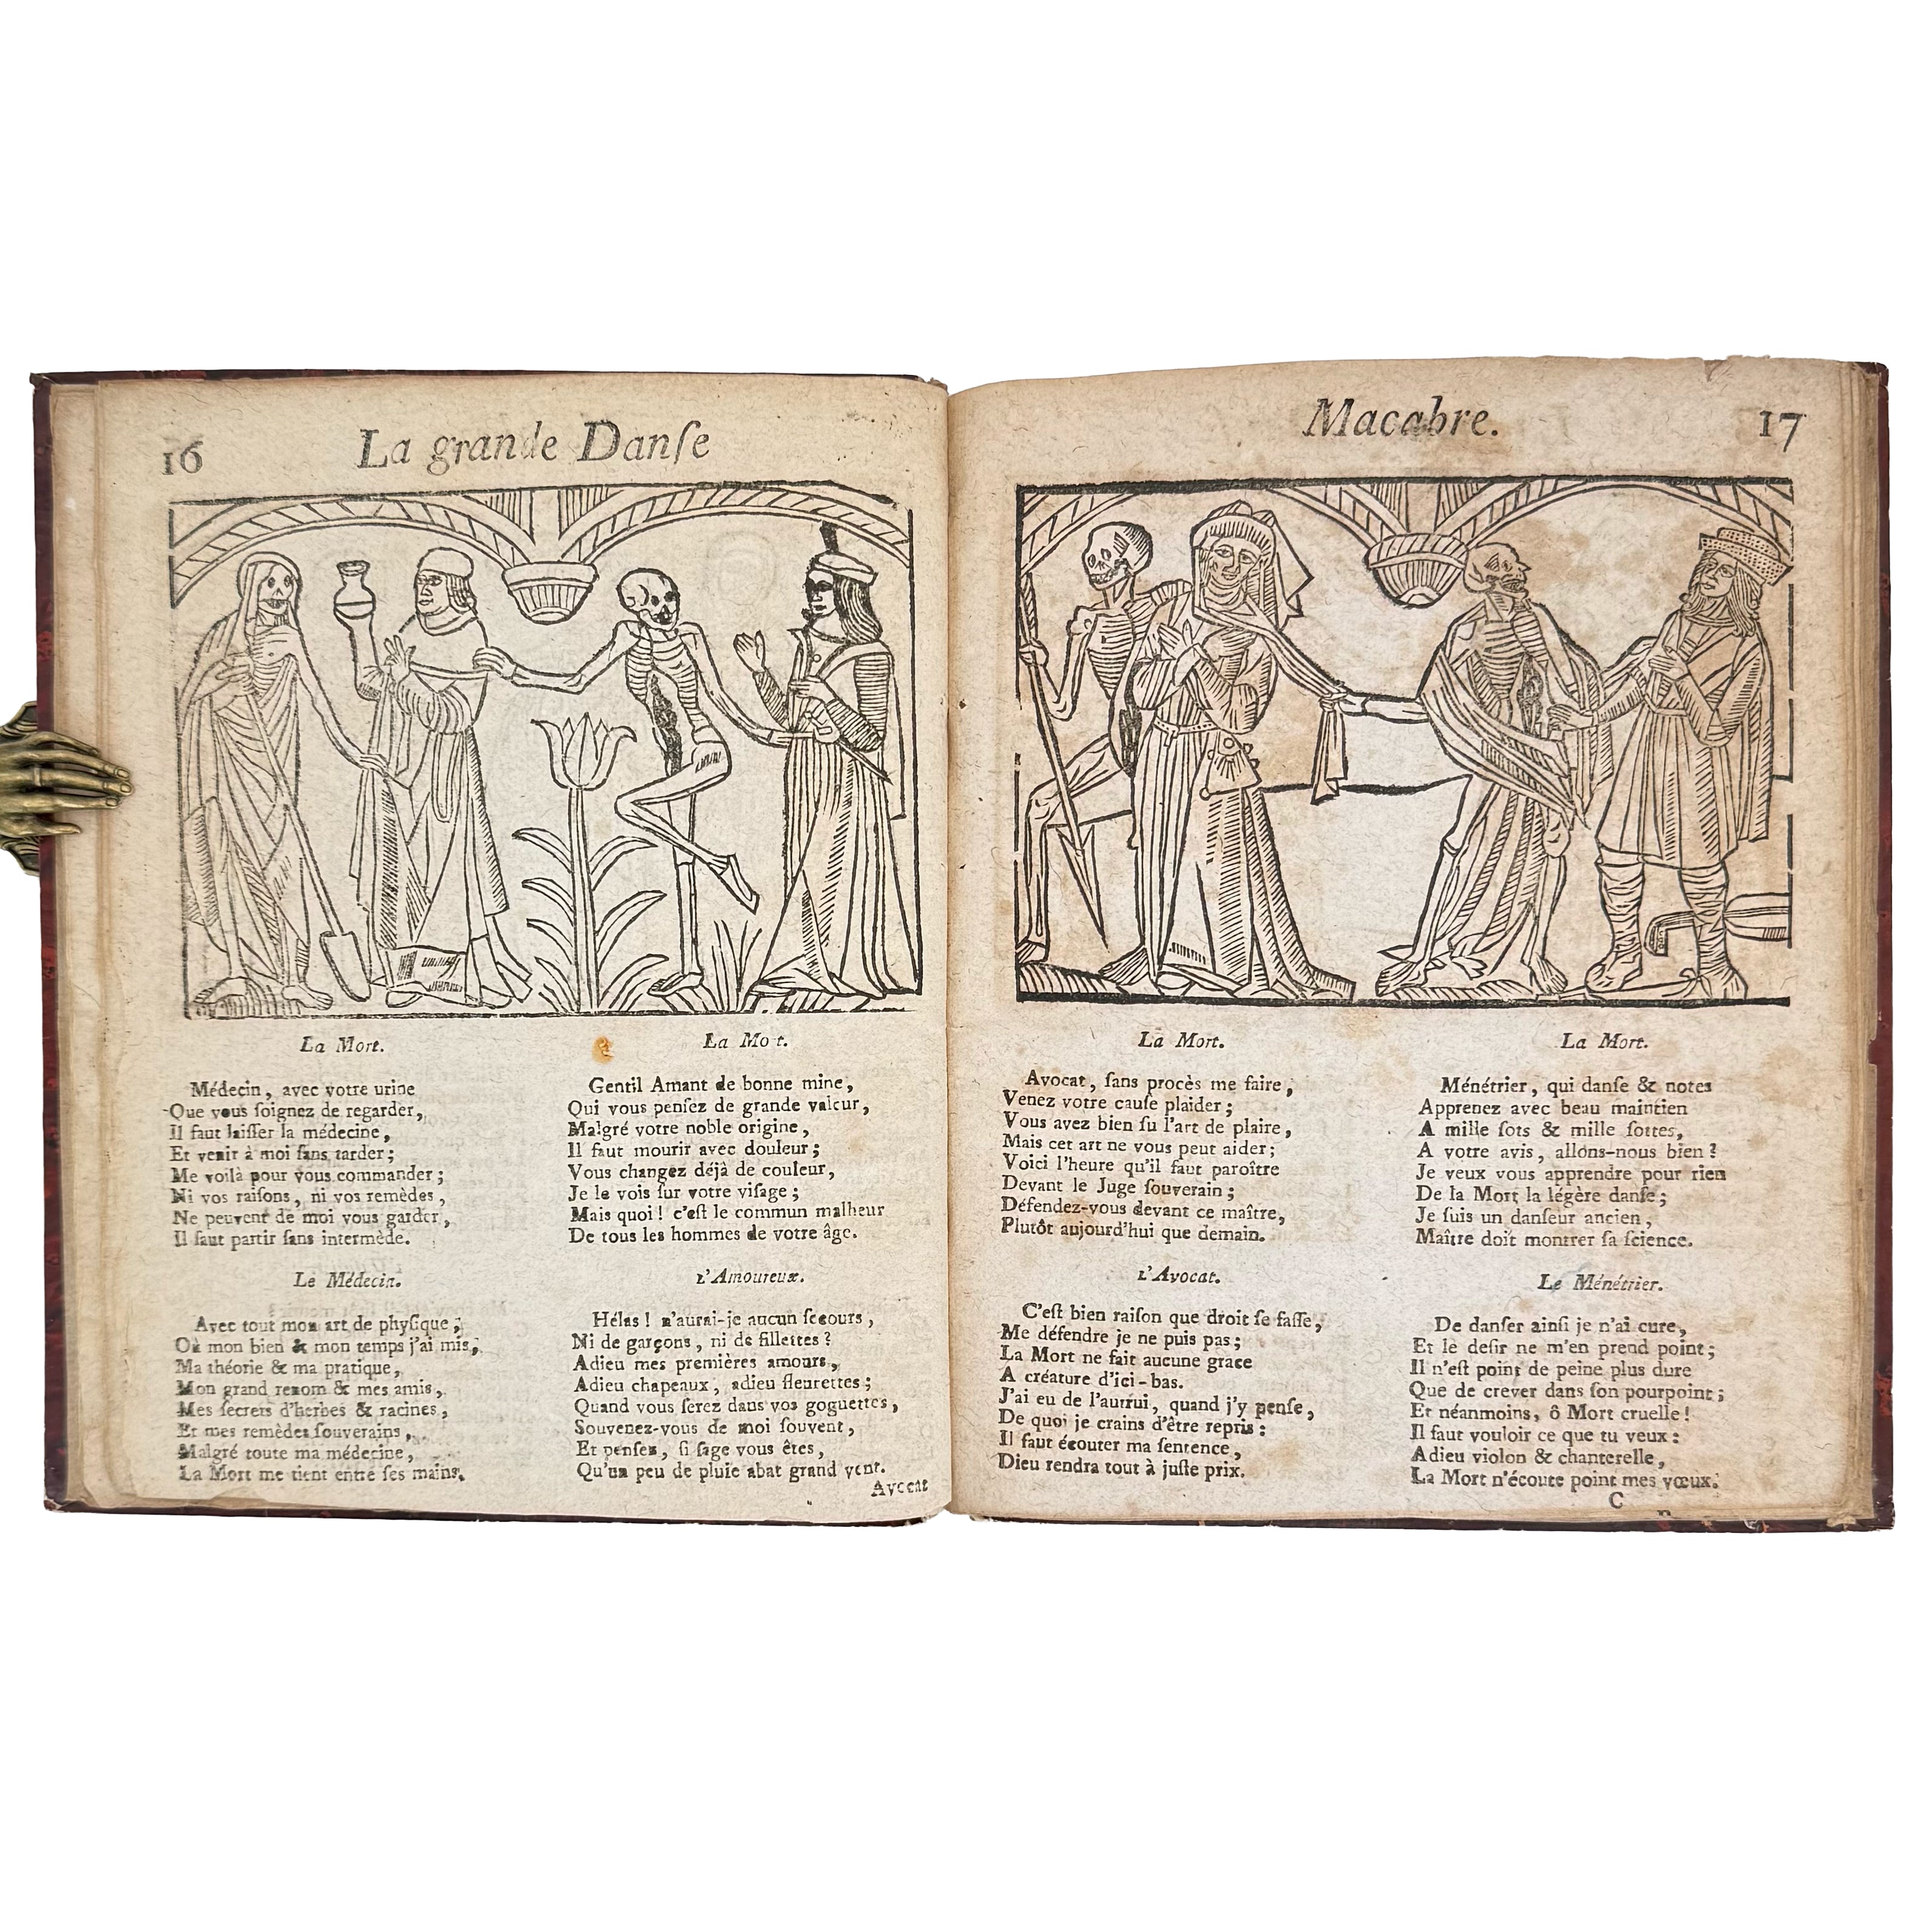 16
La grande Danſe
La Mort.
Médecin, avec votre urine
Que vous ſoignez de regarder,
Il faut laiſſer la médecine,
Et venir à moi ſans tarder;
Me voilà pour vous commander;
Ni vos raiſons, ni vos remèdes,
Ne peuvent de moi vous garder,
Il faut partir ſans intermède.
Le Médecin.
Avec tout mon art de phyſique,
Où mon bien & mon temps j'ai mis,
Ma théorie & ma pratique,
Mon grand renom & mes amis,
Mes ſecrets d'herbes & racines,
Et mes remèdes ſouverains,
Malgré toute ma médecine,
La Mort me tient entre ſes mains.
La Mo t.
Gentil Amant de bonne mine,
Qui vous penſez de grande valeur,
Malgré votre noble origine,
Il faut mourir avec douleur;
Vous changez déjà de couleur,
Je le vois ſur votre viſage;
Mais quoi! c'eſt le commun malheur
De tous les hommes de votre âge.
L'Amoureux.
Hélas! n'aurai-je aucun ſecours,
Ni de garçons, ni de fillettes?
Adieu mes premières amours,
Adieu chapeaux, adieu fleurettes;
Quand vous ſerez dans vos goguettes,
Souvenez-vous de moi ſouvent,
Et penſez, ſi ſage vous êtes,
Qu'un peu de pluie abat grand vent.
Avocat
Macabre.
17
La Mort.
Avocat, ſans procès me faire,
Venez votre cauſe plaider;
Vous avez bien ſu l'art de plaire,
Mais cet art ne vous peut aider;
Voici l'heure qu'il faut paroître
Devant le Juge ſouverain;
Défendez-vous devant ce maître,
Plutôt aujourd'hui que demain.
L'Avocat.
C'eſt bien raiſon que droit ſe faſſe,
Me défendre je ne puis pas;
La Mort ne fait aucune grace
A créature d'ici-bas.
J'ai eu de l'autrui, quand j'y penſe,
De quoi je crains d'être repris:
Il faut écouter ma ſentence,
Dieu rendra tout à juſte prix.
La Mort.
Ménétrier, qui danſe & notes
Apprenez avec beau maintien
A mille ſots & mille ſottes,
A votre avis, allons-nous bien?
Je veux vous apprendre pour rien
De la Mort la légère danſe;
Je ſuis un danſeur ancien,
Maître doit montrer ſa ſcience.
Le Ménétrier.
De danſer ainſi je n'ai cure,
Et le deſir ne m'en prend point;
Il n'eſt point de peine plus dure
Que de crever dans ſon pourpoint;
Et néanmoins, ô Mort cruelle!
Il faut vouloir ce que tu veux:
Adieu violon & chanterelle,
La Mort n'écoute point mes vœux.
C